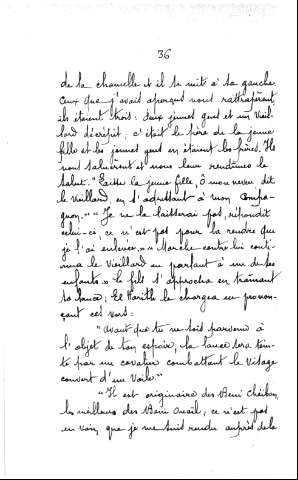 36
de la chamelle et il se mit à sa gauche.
Ceux que j'avais aperçus nous rattrapèrent,
ils étaient trois : deux jeunes gens et un vieil-
lard décrépit ; c'était le père de la jeune
fille et les jeunes gens en étaient les frères. Ils
nous saluèrent et nous leur rendîmes le
salut. "Laisse la jeune fille, Ô mon neveu dit
le vieillard en s'adressant à mon compa-
gnon." "Je ne la laisserai pas, répondit
celui-ci, ce n'est pas pour la rendre que
je l'ai enlevée." "Marche contre lui conti-
nua le vieillard en parlant à un de ses
enfants." Le fils s'approcha en traînant
sa lance ; El Harith le chargea en pronon-
çant ces vers :
"Avant que tu ne sois parvenu à
l'objet de ton espoir, ta lance sera
te par un cavalier combattant le visage
couvert d'un voile."
"Il est originaire des Beni Cheiban,
les meilleurs des Beni Ouaïl ; ce n'est pas
en vain que je me suis rendu auprès de la